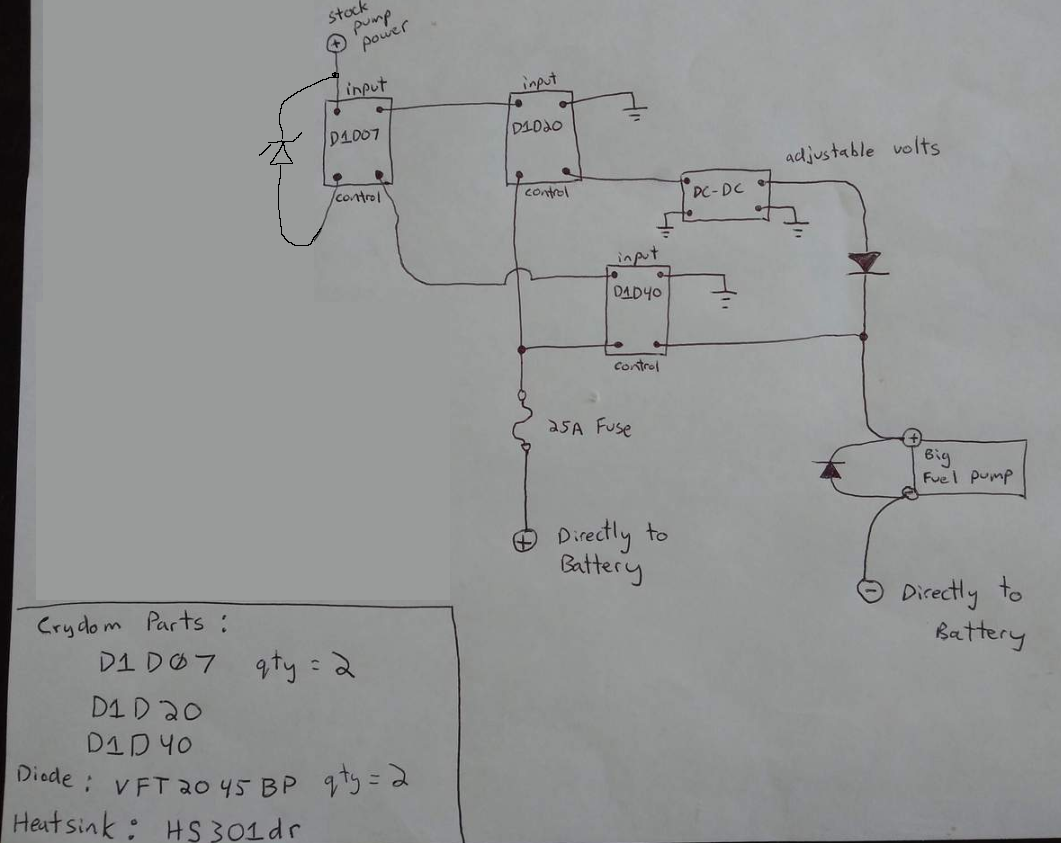 stock
pump
power
+
input
D1D07
control
input
D1D20
control
adjustable volts
DC-DC
input
D1D40
control
25A Fuse
+
Big
Fuel pump
-
+
Directly to
Battery
-
Directly to
Battery
Crydom Parts:
D1D07 qty = 2
D1D20
D1D40
Diode: VFT2045BP qty = 2
Heatsink: HS301dr